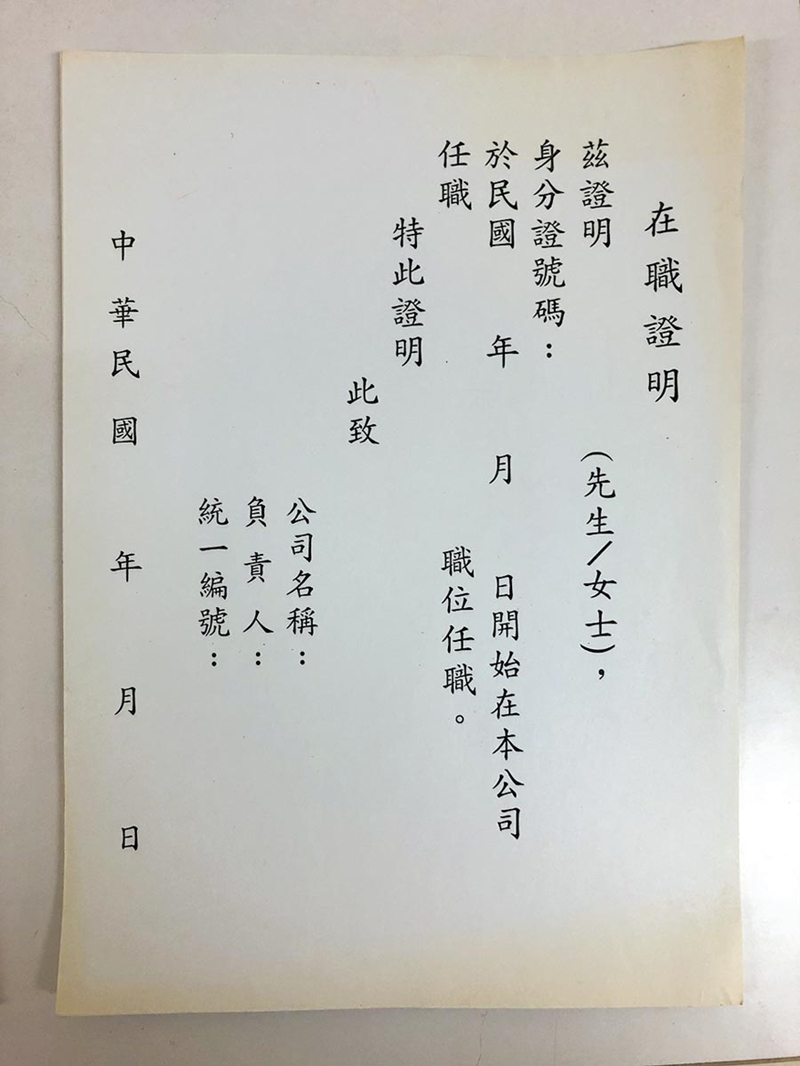 在職證明
茲證明 (先生/女士),
身分證號碼:
於民國 年 月 日開始在本公司
任職 職位任職。
特此證明
此致
公司名稱:
負責人:
統一編號:
中華民國 年 月 日